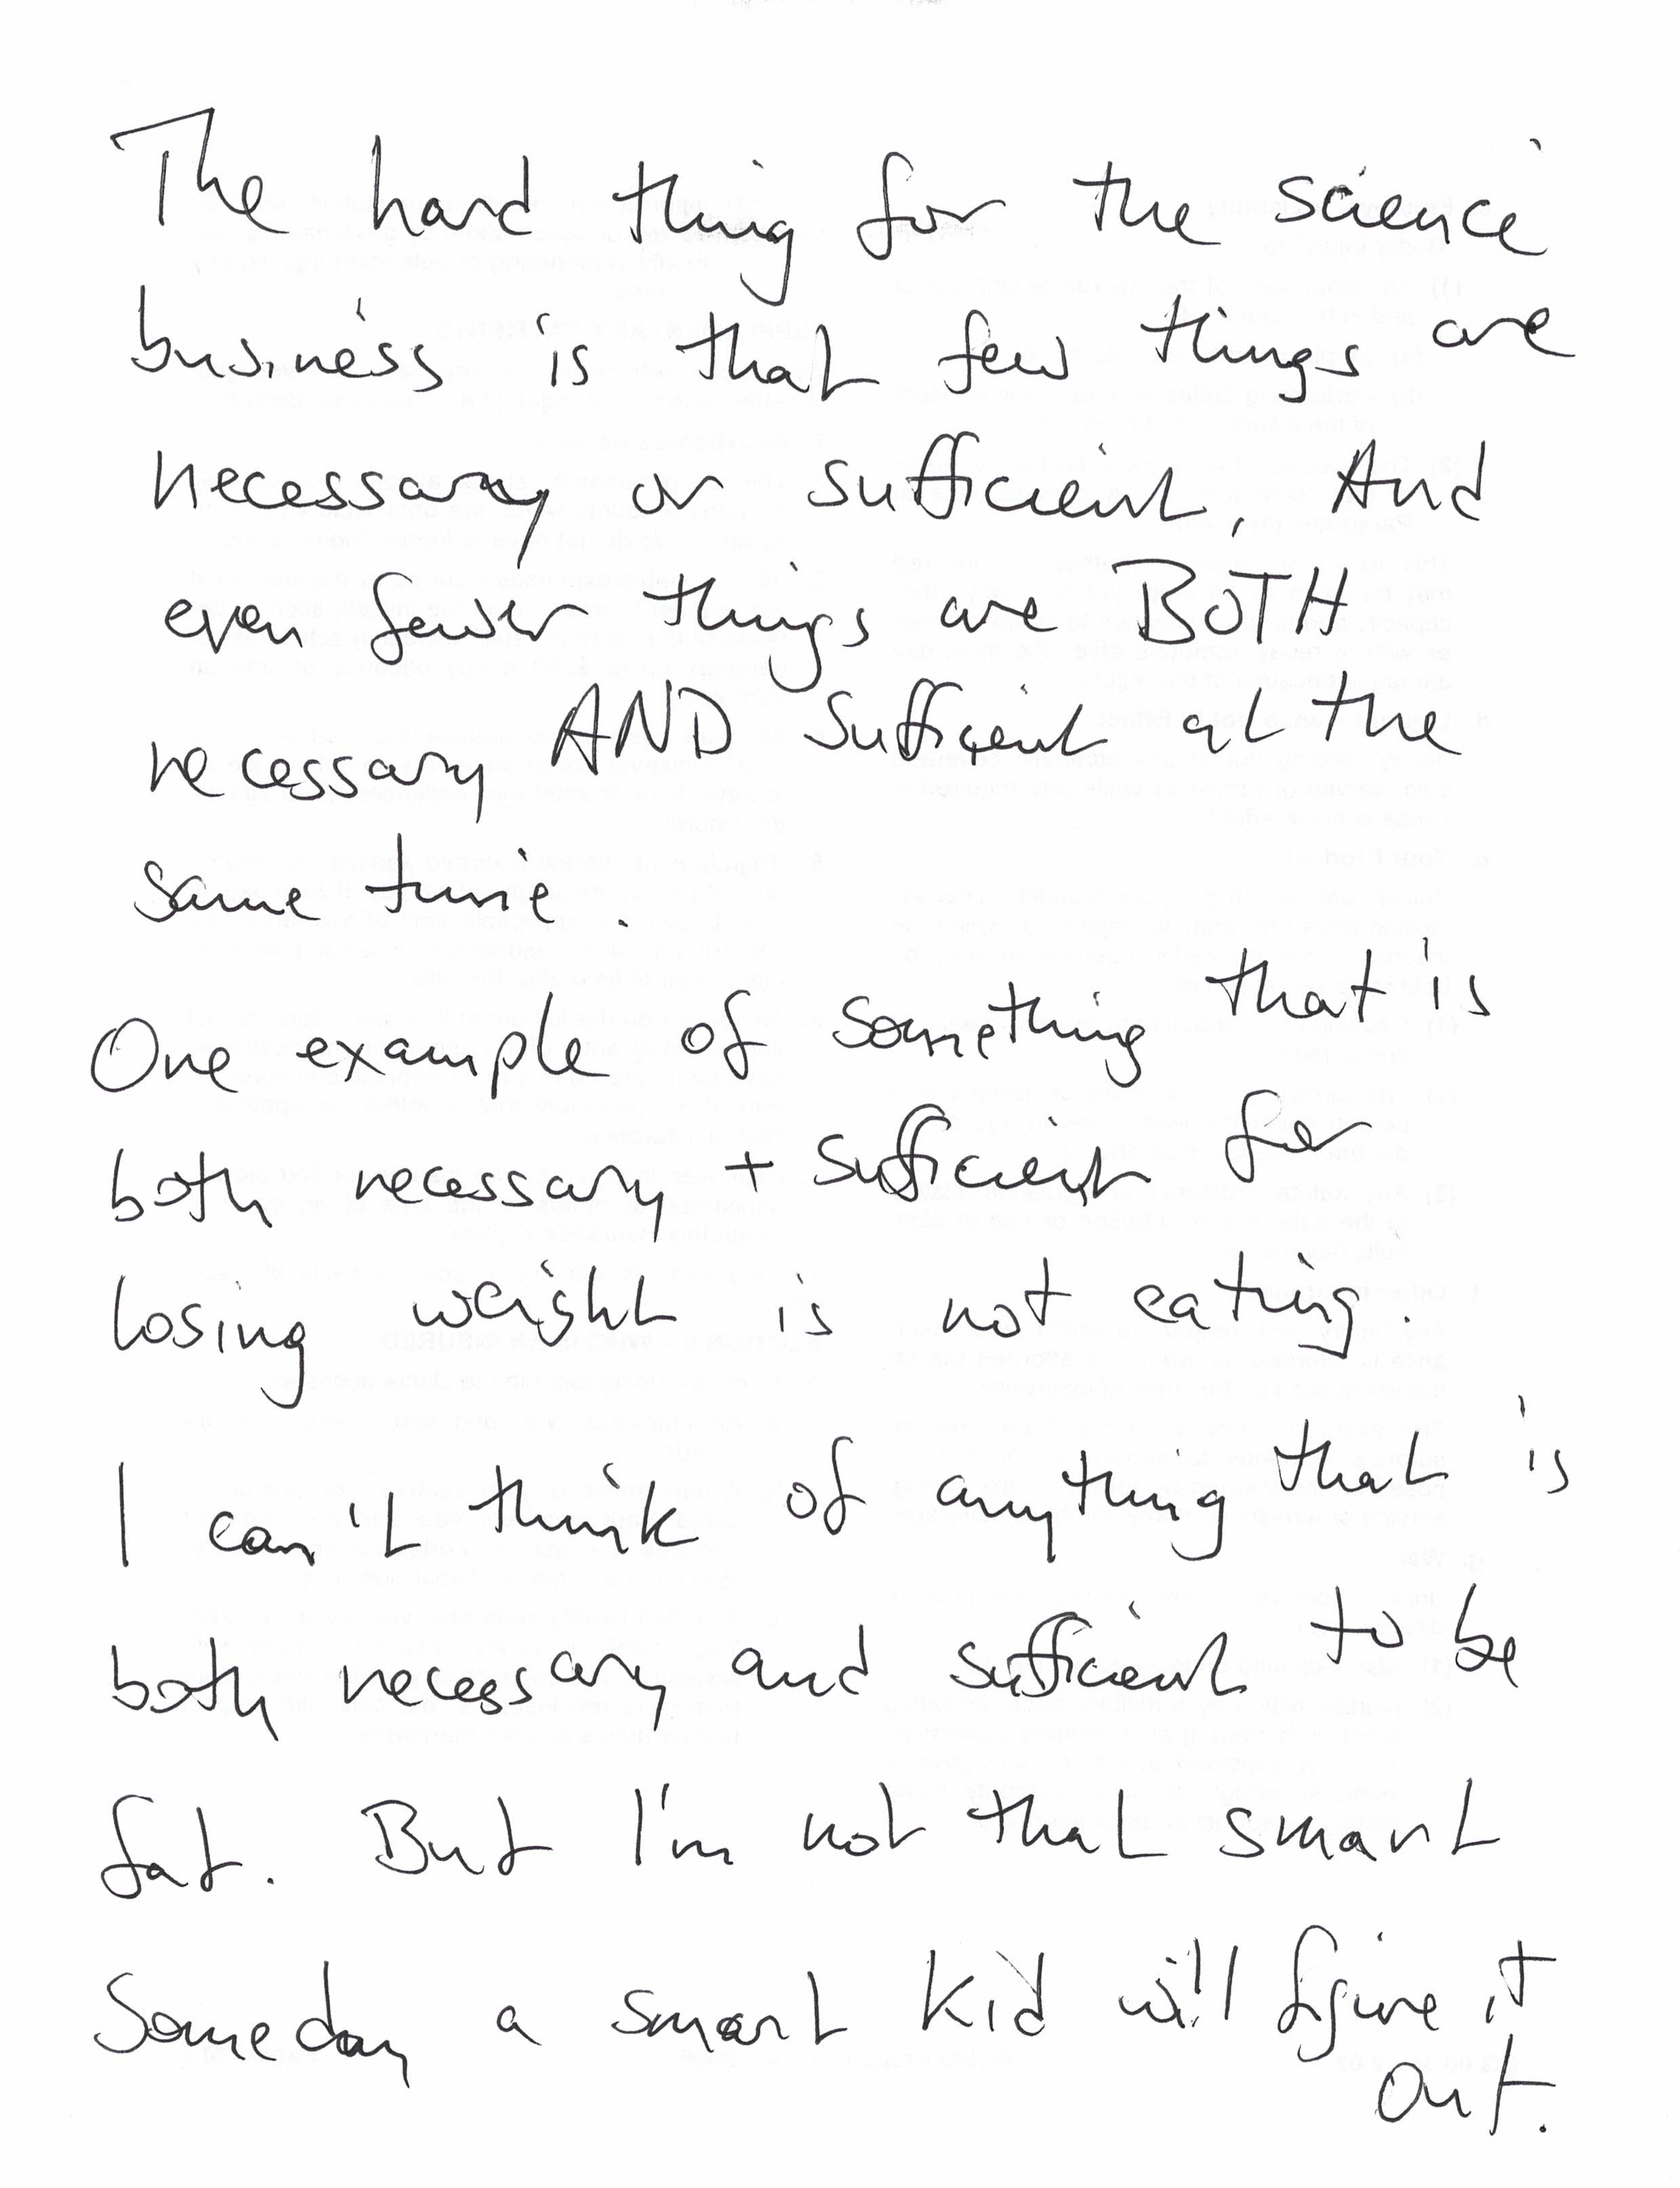 The hard thing for the science
business is that few things are
necessary or sufficient. And
even fewer things are BOTH
necessary AND sufficient at the
same time.
One example of something that is
both necessary + sufficient for
losing weight is not eating.
I can't think of anything that is
both necessary and sufficient to be
fat. But I'm not that smart
Someday a smart kid will figure it
out.